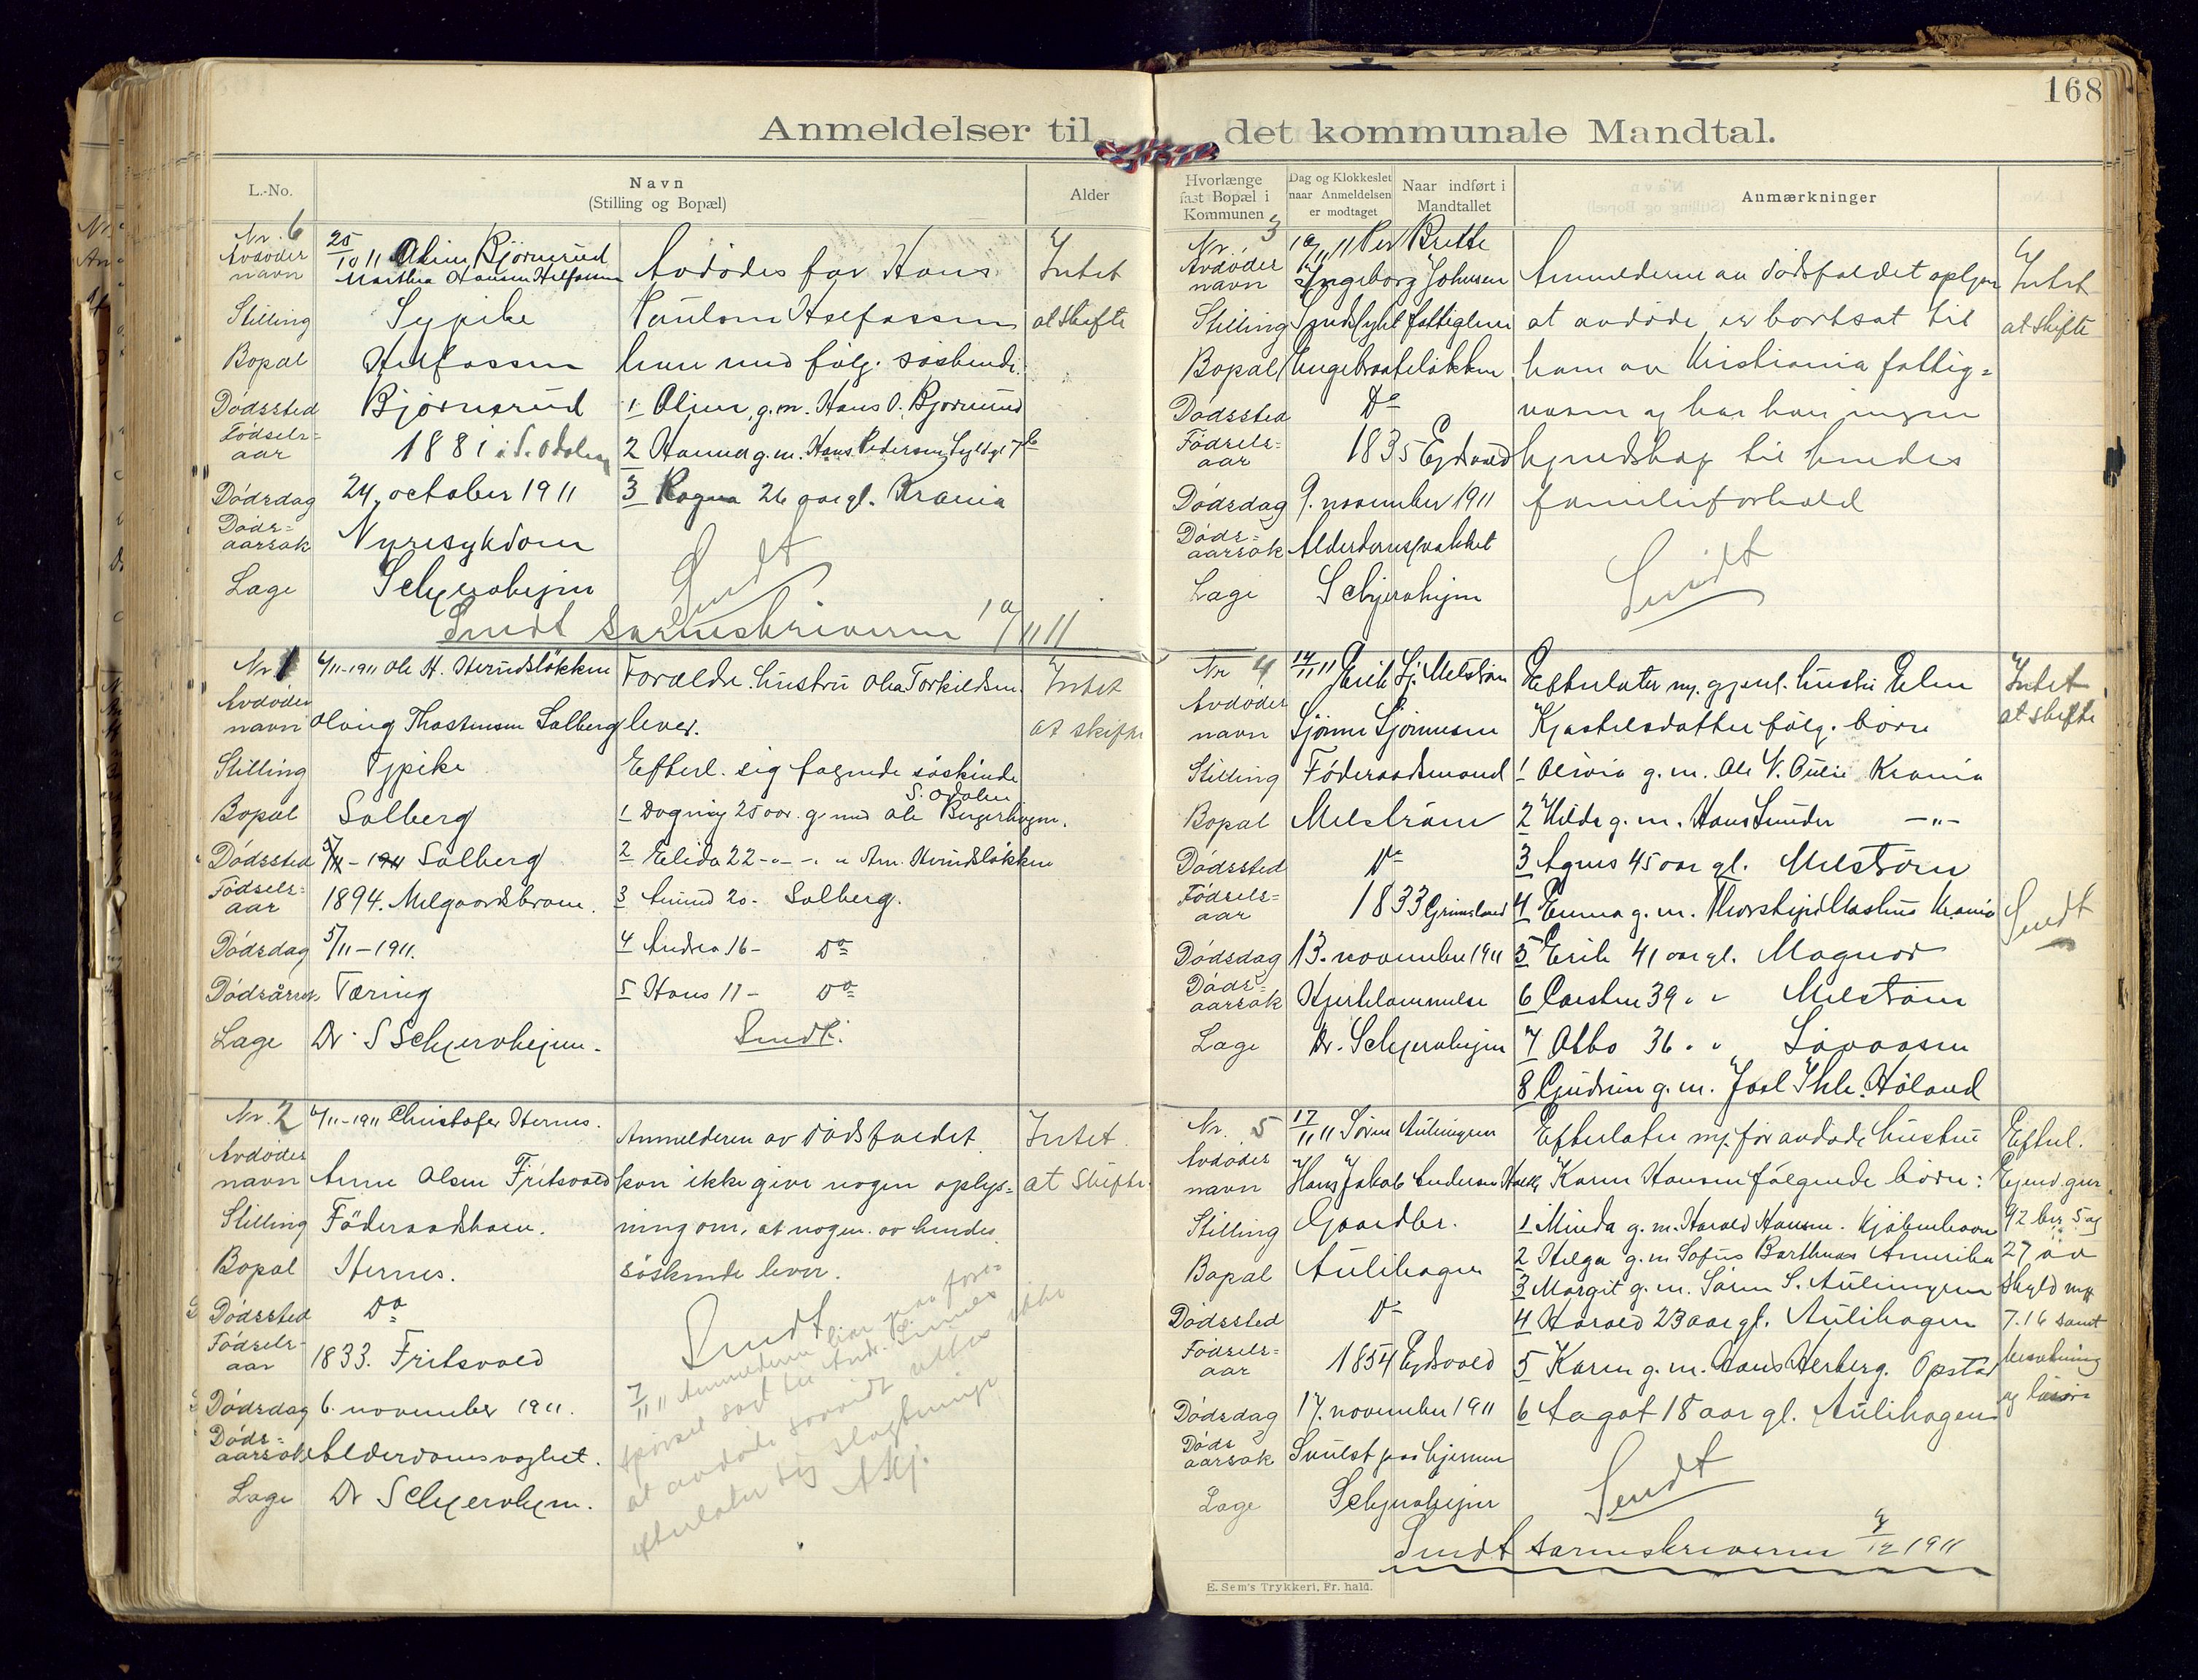 168
Anmeldelser til det kommunale Mandtal.
L.-No.
Navn
(Stilling og Bopæl)
Alder
Nr. 6
25/10 11 Oline Bjørnerud
Avdødes navn
Marthea Hansen Helfossen
Stilling Sypike
Bopæl Helfossen
Dødssted Bjørnerud
Fødselsaar 1881 i S. Odalen
Dødsdag 24. october 1911
Dødsaarsak Nyresykdom
Læge Schjervheim
Avdødes far Hans
Paulsen Helfossen
lever med følg. søskende.
1 Oline, g.m. Hans O. Bjørnerud
2 Hanna g.m. Hans Pedersen
3 Ragna 26 aar gl. Krania
Sendt
Intet
at skifte
Sendt sorenskriveren 10/11 11
Nr 1
6/11-1911 Ole H. Herudsløkken
Avdødes navn Olaug Thostensen Solberg
Stilling Tjpike
Bopæl Solberg
Dødssted 5/11-1911 Solberg
Fødselsaar 1894. Melgaardsbraue.
Dødsdag 5/11-1911.
Dødsårsak Tæring
Læge Dr. S Schjervheim.
Forældre. hustru Olia Torkildsen
lever.
Efterl. sig følgende søskinde
S. Odalen
1 Dagny 25 aar. g. med Ole Bergerhagen.
2 Elida 22 - " - " Am. Herudsløkken
3 Amund 20 - Solberg.
4 Andrea 16 - Do
5 Hans 11 - Do
Sendt.
Intet
at skifte
Nr. 2
6/11-1911 Christofer Hernes.
Avdødes navn Anne Olsen Fritsvold
Stilling Føderaadskone.
Bopæl Hernes.
Dødssted Do
Fødselsaar 1833. Fritsvold
Dødsdag 6. november 1911.
Dødsaarsak Alderdomsvaghet.
Læge Dr Schjervheim.
Anmelderen av dødsfaldet
kan ikke give nogen oplys=
ning om, at nogen av hendes
søskende lever.
Sendt
7/11 11 Anmelderen har paa fore=
spørsel sagt til
at avdøde saavidt vites ikke
efterlater sig slægtninge
AKj.
Intet
at skifte
Hvorlænge fast Bopæl i Kommunen
Dag og Klokkeslet naar Anmeldelsen er modtaget
Naar indført i Mandtallet
Anmærkninger
Nr. 3
10/11 11 Per Bratte
Avdødes navn Ingeborg Johnsen
Stilling Sindssykt fattiglem
Bopæl Engebraateløkken
Dødssted Do
Fødselsaar 1835 Eidsvold
Dødsdag 9. november 1911
Dødsaarsak Alderdomssvakhet
Læge Schjervheim
Anmelderen av dødsfaldet oplyser
at avdøde er bortsat til
ham av Kristiania fattig=
væsen og har han ingen
kjendskap til hendes
familieforhold
Sendt
Intet
at skifte
Nr 4
14/11 11 Erik Sj. Melstrøm
Avdødes navn Sjønne Sjønnesen
Stilling Føderaadsmand
Bopæl Melstrøm
Dødssted Do
Fødselsaar 1833 Grimsland
Dødsdag 13. november 1911
Dødsaarsak Hjertelammelse
Læge Dr. Schjervheim
Efterlater sig gjenl. hustru Elen
Kjostelsdatter følg. børn
1 Olivia g.m. Ole V. Aulie Krania
2 Hilda g.m. Hans Sunder - " -
3 Agnes 45 aar gl. Melstrøm
4 Emma g.m. Krania
5 Erik 41 aar gl. Magnor
6 Carsten 39 " " Melstrøm
7 Otto 36 " " Løvaasen
8 Gudrun g.m. Joel Ihle. Høland
Intet
at skifte
Sendt
Nr. 5
17/11 11 Søren Aulingen
Avdødes navn Hans Jakob Andersen
Stilling Gaardbr.
Bopæl Aulihagen
Dødssted Do
Fødselsaar 1854 Eydsvold
Dødsdag 17. november 1911
Dødsaarsak Svulst paa hjernen
Læge Schjervheim
Efterlater sig foruden hustru
Karen Hansen følgende børn:
1 Minda g.m. Harald Hansen. Kjøbenhavn
2 Helga g.m. Sofus Barthnæs Amerika
3 Margit g.m. Søren S. Aulingen
4 Harald 23 aar gl. Aulihagen
5 Karen g.m. Hans Herberg. Opstad
6 Aagot 18 aar gl. Aulihagen
Sendt
Efterl.
Ejend. gnr.
92 br. 5 og
27 av
skyld mk
7.16 samt
besætning
og løsøre
Sendt sorenskriveren 4/12 1911
E. Sem's Trykkeri, Fr. hald.